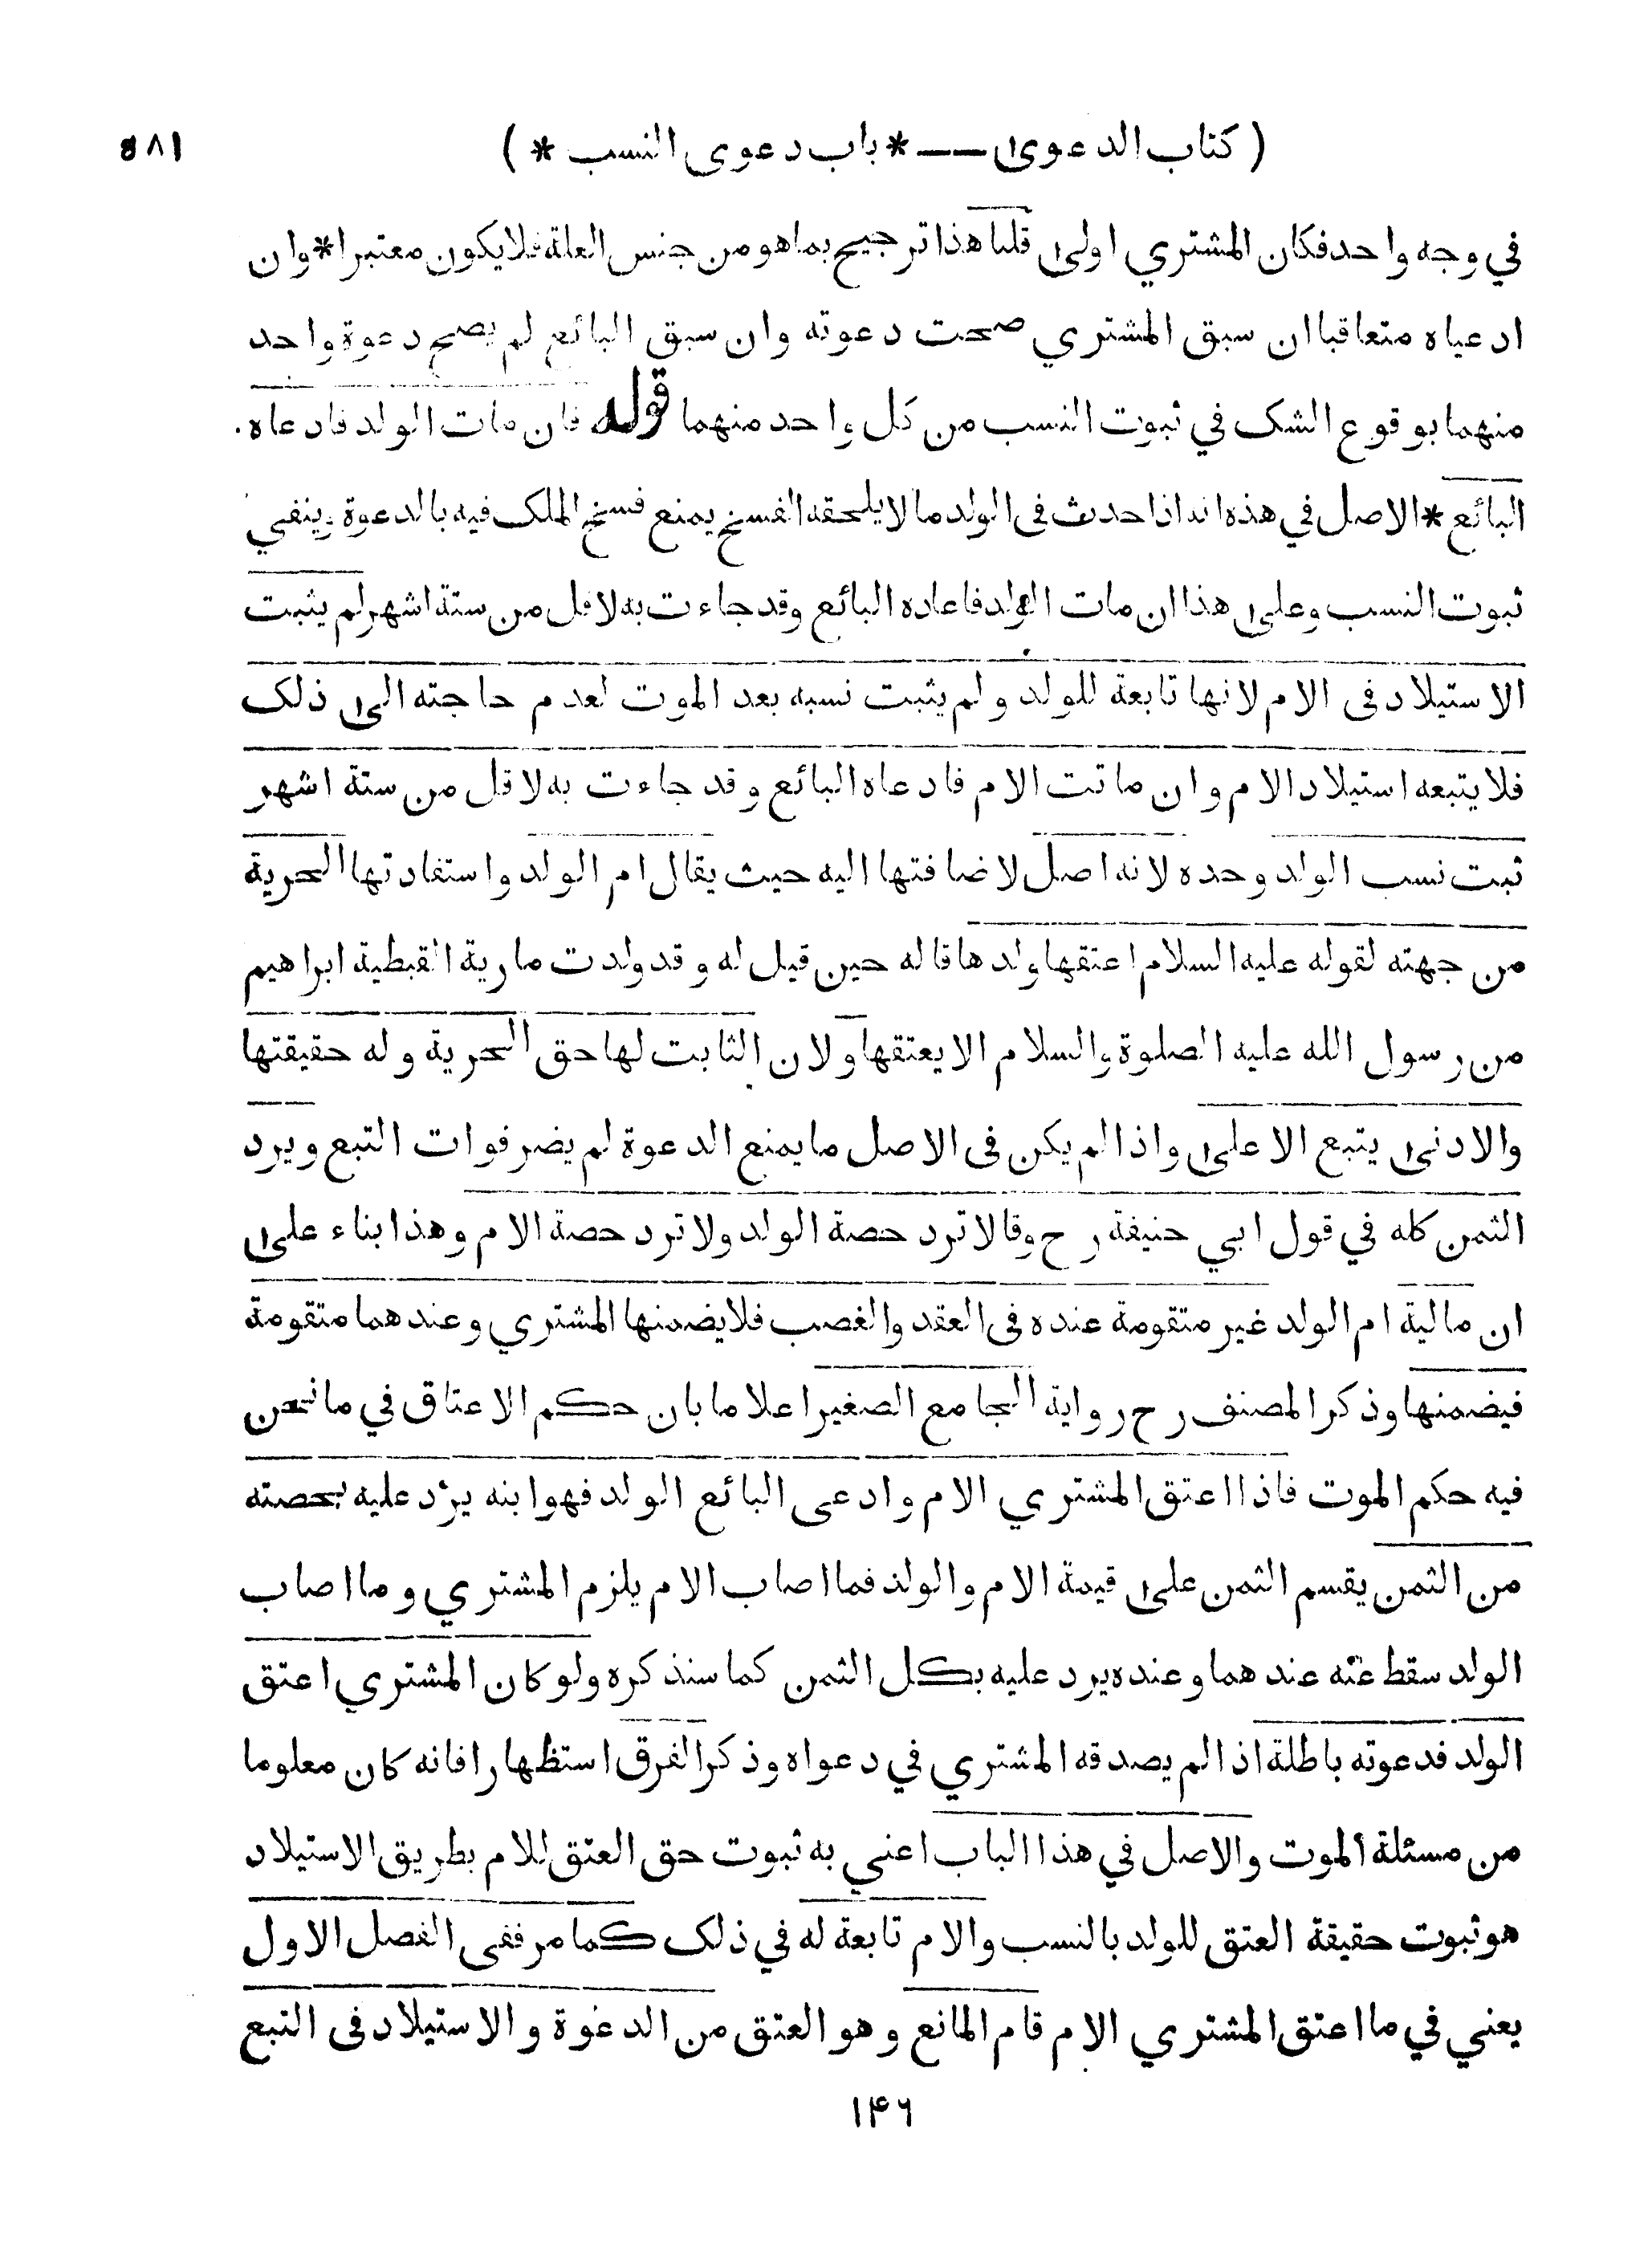 ( كتاب الدعوى —— * باب دعوى النسب * )
٥٨١
في وجه واحد فكان المشتري اولى قلنا هذا ترجيح بما هو من جنس العلة فلا يكون معتبرا * وان
ادعياه متعاقبا ان سبق المشتري صحت دعوته وان سبق البائع لم يصح دعوة واحد
منهما بوقوع الشك في ثبوت النسب من كل واحد منهما قوله فان مات الولد فادعاه
البائع * الاصل في هذه انه اذا حدث في الولد ما لا يلحقه الفسخ يمنع فسخ الملك فيه بالدعوة وينفي
ثبوت النسب وعلى هذا ان مات الولد فاعاده البائع وقد جاءت به لاقل من ستة اشهر لم يثبت
الاستيلاد في الام لانها تابعة للولد ولم يثبت نسبه بعد الموت لعدم حاجته الى ذلك
فلا يتبعه استيلاد الام وان ماتت الام فادعاه البائع وقد جاءت به لاقل من ستة اشهر
ثبت نسب الولد وحده لانه اصل لاضافتها اليه حيث يقال ام الولد واستفادتها الحرية
من جهته لقوله عليه السلام اعتقها ولدها قاله حين قيل له وقد ولدت مارية القبطية ابراهيم
من رسول الله عليه الصلوة والسلام الا يعتقها ولان الثابت لها حق الحرية وله حقيقتها
والادنى يتبع الاعلى واذا لم يكن في الاصل ما يمنع الدعوة لم يضر فوات التبع ويرد
الثمن كله في قول ابي حنيفة رح وقالا ترد حصة الولد ولا ترد حصة الام وهذا بناء على
ان مالية ام الولد غير متقومة عنده في العقد والغصب فلا يضمنها المشتري وعندهما متقومة
فيضمنها وذكر المصنف رح رواية الجامع الصغير اعلاما بان حكم الاعتاق في ما نحن
فيه حكم الموت فاذا اعتق المشتري الام وادعى البائع الولد فهو ابنه يرد عليه بحصته
من الثمن يقسم الثمن على قيمة الام والولد فما اصاب الام يلزم المشتري وما اصاب
الولد سقط عنه عندهما وعنده يرد عليه بكل الثمن كما سنذكره ولو كان المشتري اعتق
الولد فدعوته باطلة اذا لم يصدقه المشتري في دعواه وذكر الفرق استظهارا فانه كان معلوما
من مسئلة الموت والاصل في هذا الباب اعني به ثبوت حق العتق للام بطريق الاستيلاد
هو ثبوت حقيقة العتق للولد بالنسب والام تابعة له في ذلك كما مر ففي الفصل الاول
يعني في ما اعتق المشتري الام قام المانع وهو العتق من الدعوة والاستيلاد في التبع
١۴٦